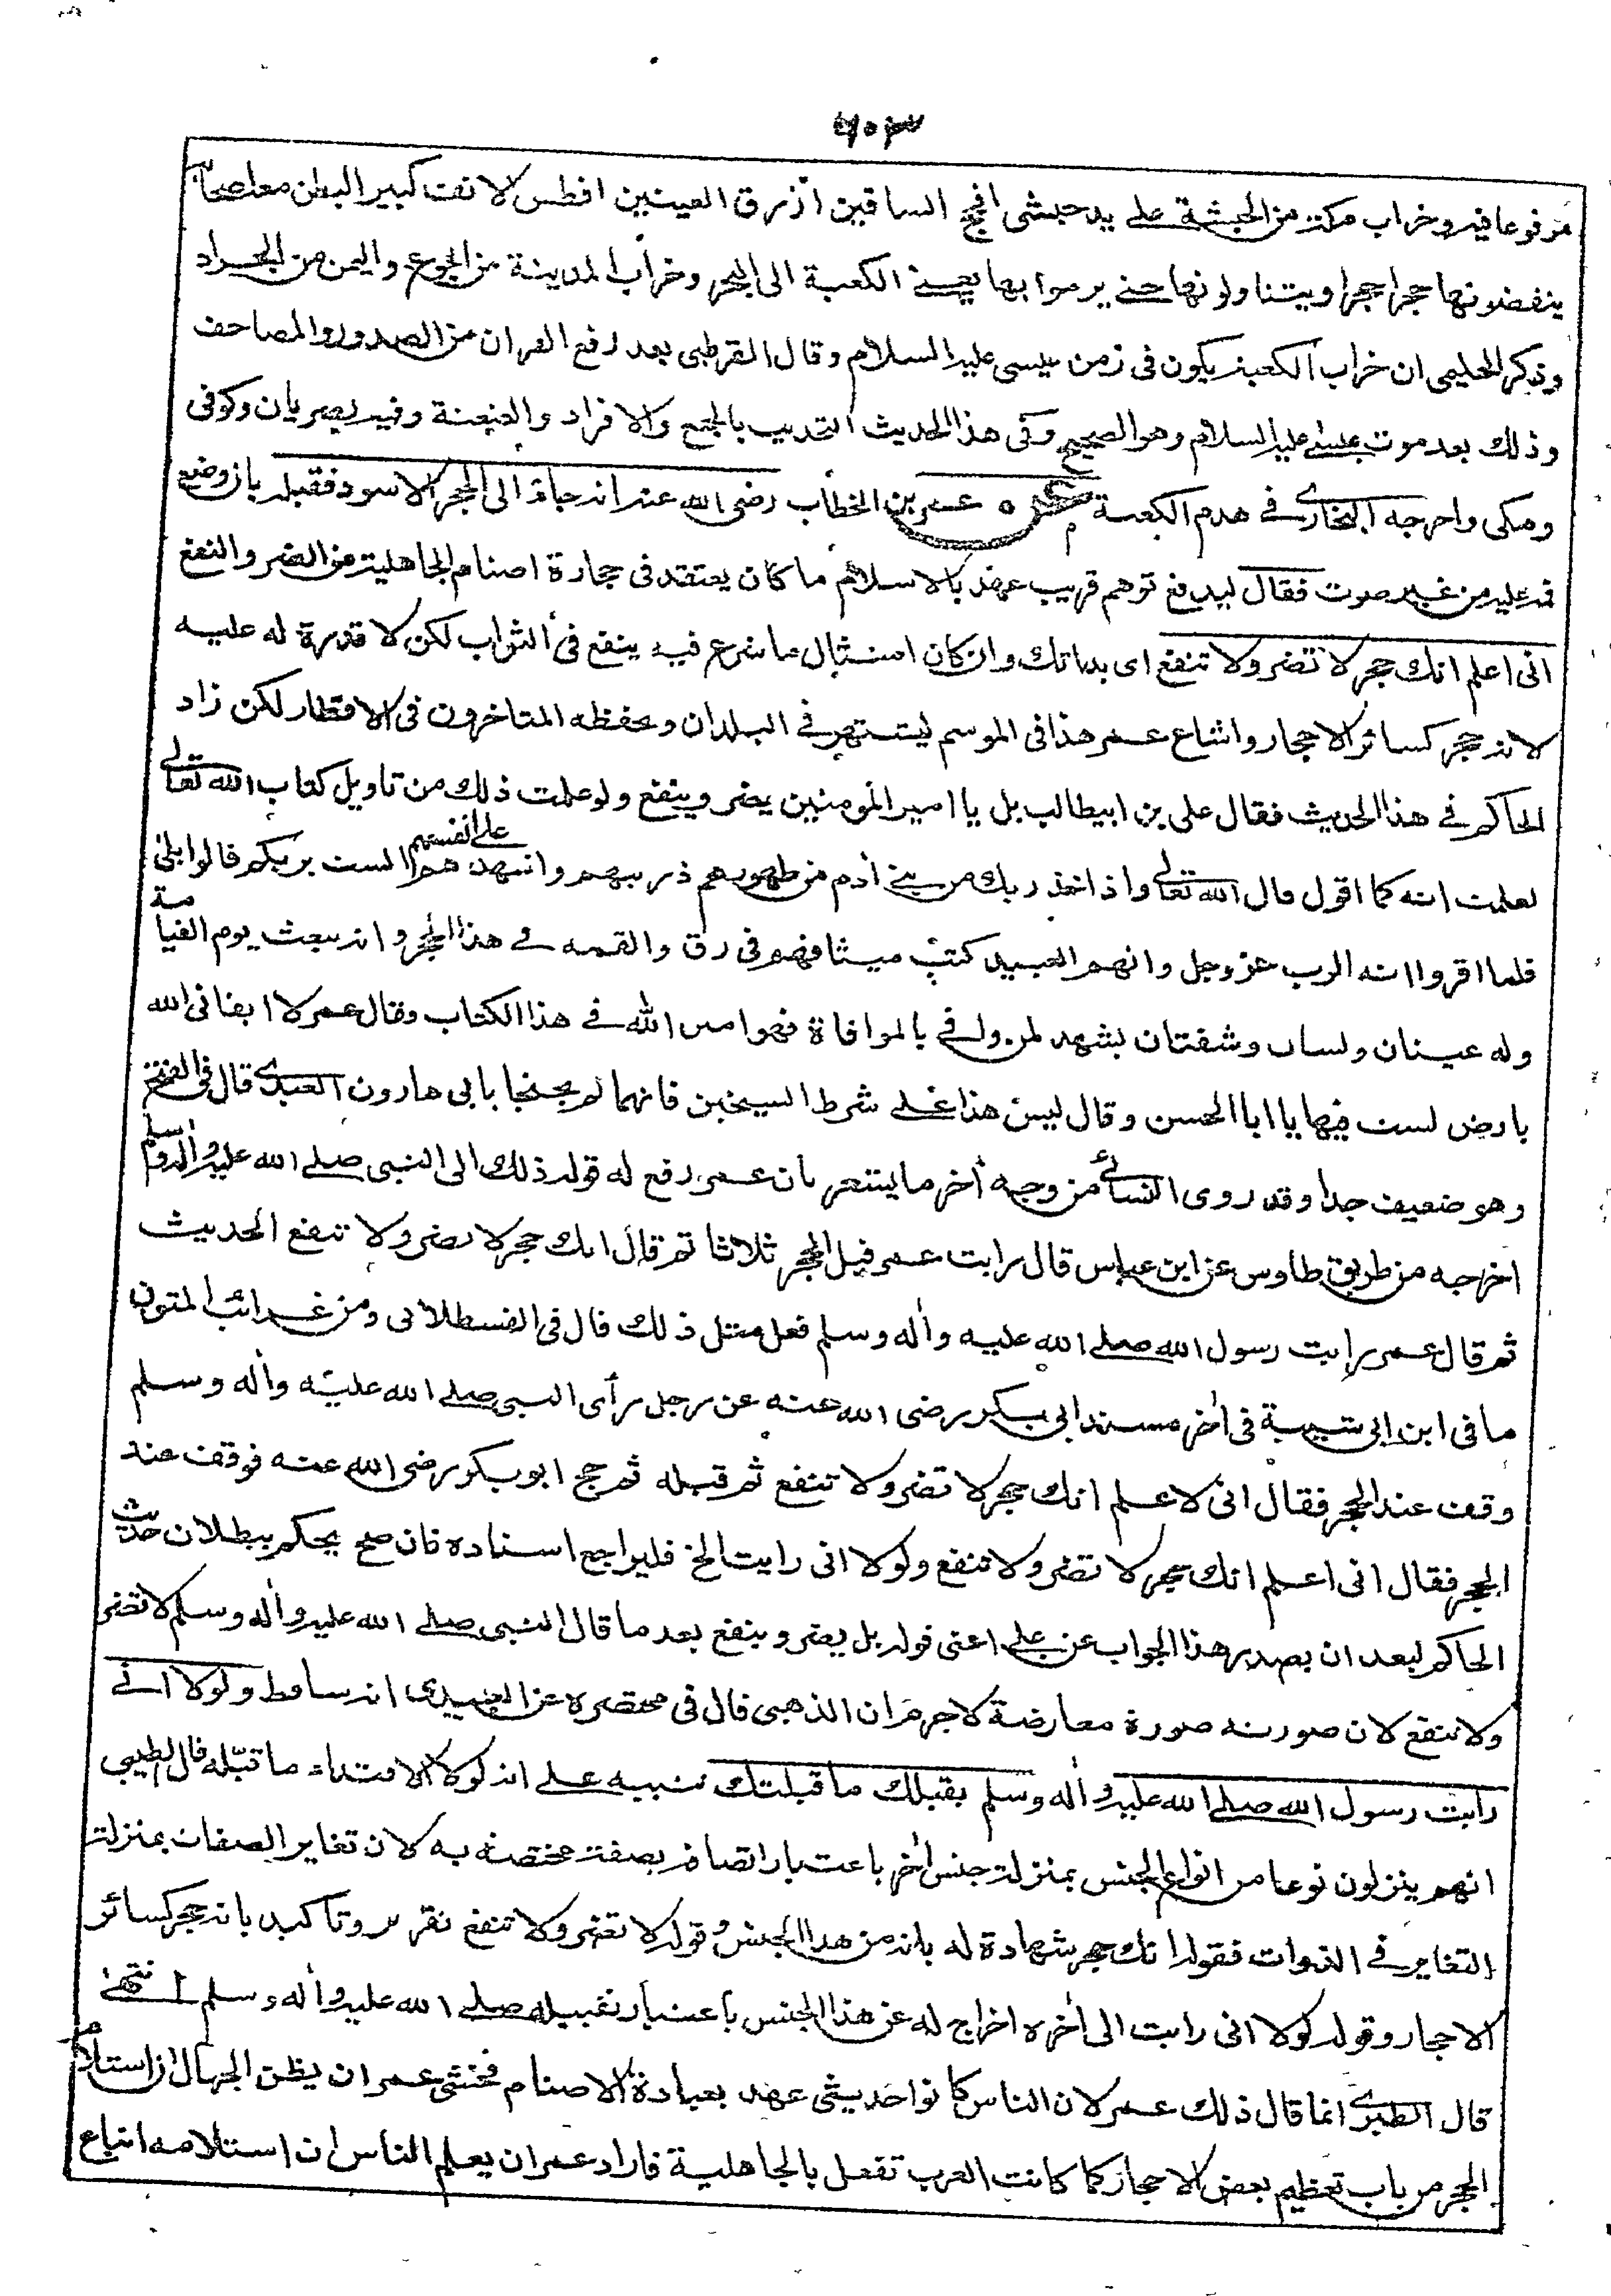 ٢٠٣
مرفوعا فيه وخراب مكة من الحبشة على يد حبشى افحج الساقين ازرق العينين افطس الانف كبير البطن معه اصحابه
ينقضونها حجرا حجرا ويتناولونها حتى يرموا بها يعنى الكعبة الى البحر وخراب المدينة من الجوع واليمن من الجراد
وذكر الحليمى ان خراب الكعبة يكون فى زمن عيسى عليه السلام وقال القرطبى بعد رفع القران من الصدور والمصاحف
وذلك بعد موت عيسى عليه السلام وهو الصحيح وفى هذا الحديث التحديث بالجمع والافراد والعنعنة وفيه بصريان وكوفى
ومكى واخرجه البخارى فى هدم الكعبة عمر بن الخطاب رضى الله عنه انه جاء الى الحجر الاسود فقبله بان وضع
فمه عليه من غير صوت فقال ليدفع توهم قريب عهد بالاسلام ما كان يعتقد فى حجارة اصنام الجاهلية من الضر والنفع
انى اعلم انك حجر لا تضر ولا تنفع اى بذاتك وان كان امتثال ما شرع فيه ينفع فى الثواب لكن لا قدرة له عليه
لانه حجر كسائر الاحجار واشاع عمر هذا فى الموسم ليشتهر فى البلدان وحفظه المتاخرون فى الاقطار لكن زاد
الحاكم فى هذا الحديث فقال على بن ابيطالب بل يا امير المومنين يضر وينفع ولو علمت ذلك من تاويل كتاب الله تعالى
لعلمت انه كما اقول قال الله تعالى واذ اخذ ربك من بنى أدم من ظهورهم ذريتهم واشهدهم على انفسهم الست بربكم قالوا بلى
فلما اقروا انه الرب عز وجل وانهم العبيد كتب ميثاقهم فى رق والقمه فى هذا الحجر وانه يبعث يوم القيامة
وله عينان ولسان وشفتان يشهد لمن وافى بالموافاة فهو امين الله فى هذا الكتاب وقال عمر لا ابقانى الله
بارض لست فيها يا ابا الحسن وقال ليس هذا على شرط الشيخين فانهما لم يحتجا بابى هارون العبدى قال فى الفتح
وهو ضعيف جدا وقد روى النسائى من وجه أخر ما يشعر بان عمر رفع له قوله ذلك الى النبى صلى الله عليه وأله وسلم
اخرجه من طريق طاوس عن ابن عباس قال رايت عمر قبل الحجر ثلاثا ثم قال انك حجر لا تضر ولا تنفع الحديث
ثم قال عمر رايت رسول الله صلى الله عليه وأله وسلم فعل مثل ذلك قال فى القسطلانى ومن غرائب المتون
ما فى ابن ابى شيبة فى أخر مسند ابى بكر رضى الله عنه عن رجل رأى النبى صلى الله عليه وأله وسلم
وقف عند الحجر فقال انى لاعلم انك حجر لا تضر ولا تنفع ثم قبله ثم حج ابو بكر رضى الله عنه فوقف عند
الحجر فقال انى اعلم انك حجر لا تضر ولا تنفع ولولا انى رايت الخ فليراجع اسناده فان صح يحكم ببطلان حديث
الحاكم لبعد ان يصدر هذا الجواب عن على اعنى قوله بل يضر وينفع بعد ما قال النبى صلى الله عليه وأله وسلم لا تضر
ولا تنفع لان صورته صورة معارضة لا جرم ان الذهبى قال فى مختصره عن العبدى انه ساقط ولولا انى
رايت رسول الله صلى الله عليه وأله وسلم يقبلك ما قبلتك تنبيه على انه لولا الاقتداء ما قبّله قال الطيبى
انهم ينزلون نوعا من انواع الجنس بمنزلة جنس أخر باعتبار اتصافه بصفة مختصة به لان تغاير الصفات بمنزلة
التغاير فى الذوات فقوله انك حجر شهادة له بانه من هذا الجنس وقوله لا تضر ولا تنفع تقرير وتاكيد بانه حجر كسائر
الاحجار وقوله لولا انى رايت الى أخره اخراج له عن هذا الجنس باعتبار تقبيله صلى الله عليه وأله وسلم انتهى
قال الطبرى انما قال ذلك عمر لان الناس كانوا حديثى عهد بعبادة الاصنام فخشى عمر ان يظن الجهال ان استلام
الحجر من باب تعظيم بعض الاحجار كما كانت العرب تفعل بالجاهلية فاراد عمر ان يعلم الناس ان استلامه اتباع